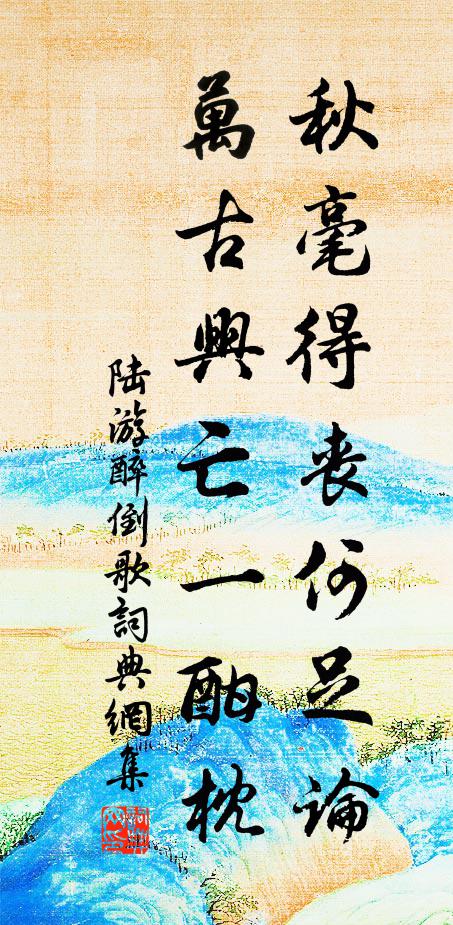 秋毫得丧何足論
萬古興亡一酣枕
陆游醉倒歌詞典網集